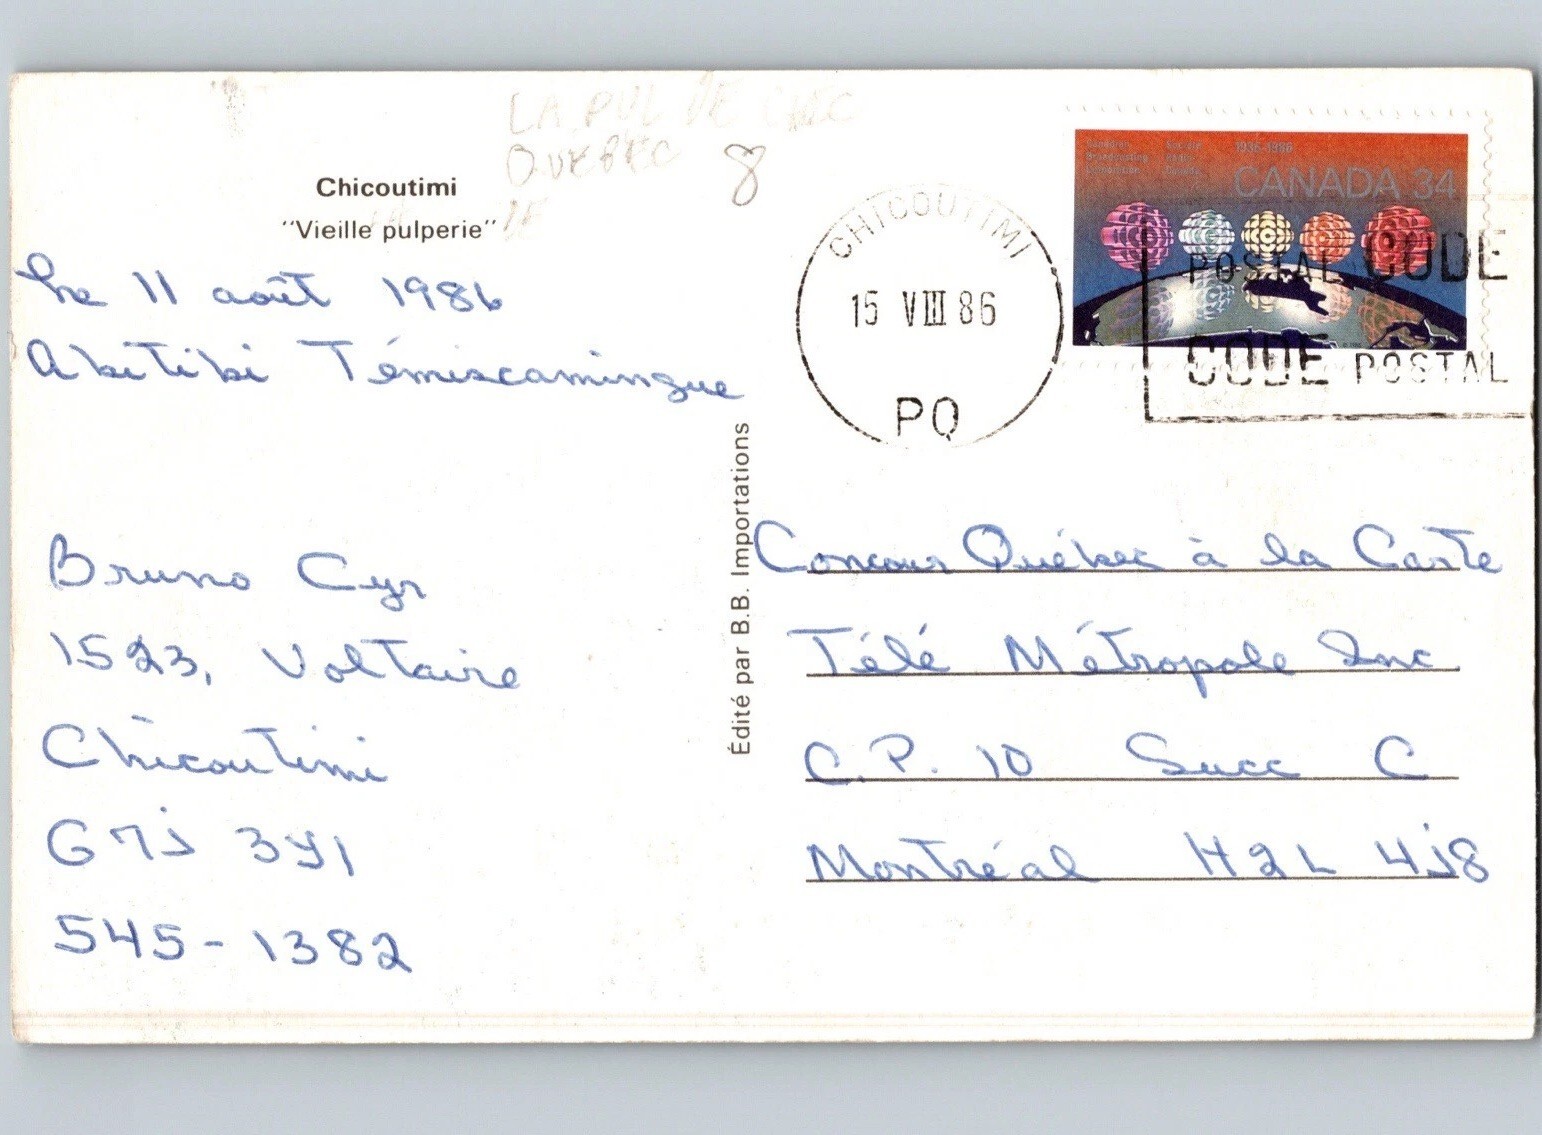 LA PUL DE CHIC
QUEBEC 8
Chicoutimi
"Vieille pulperie"
Le 11 août 1986
Abitibi Témiscamingue
Bruno Cyr
1523, Voltaire
Chicoutimi
G7J 3Y1
545-1382
Édité par B.B. Importations
CHICOUTIMI
15 VIII 86
PQ
Canadian
Broadcasting
Corporation
Société
Radio
Canada
1936-1986
CANADA 34
POSTAL CODE
CODE POSTAL
Concour Québec à la Carte
Télé Métropole Inc
C.P. 10 Succ C
Montréal H2L 4J8